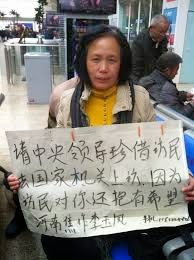 请中央领导珍借访民
去国家机关上访,因为
访民对你还抱有希望
河南焦作李玉凤